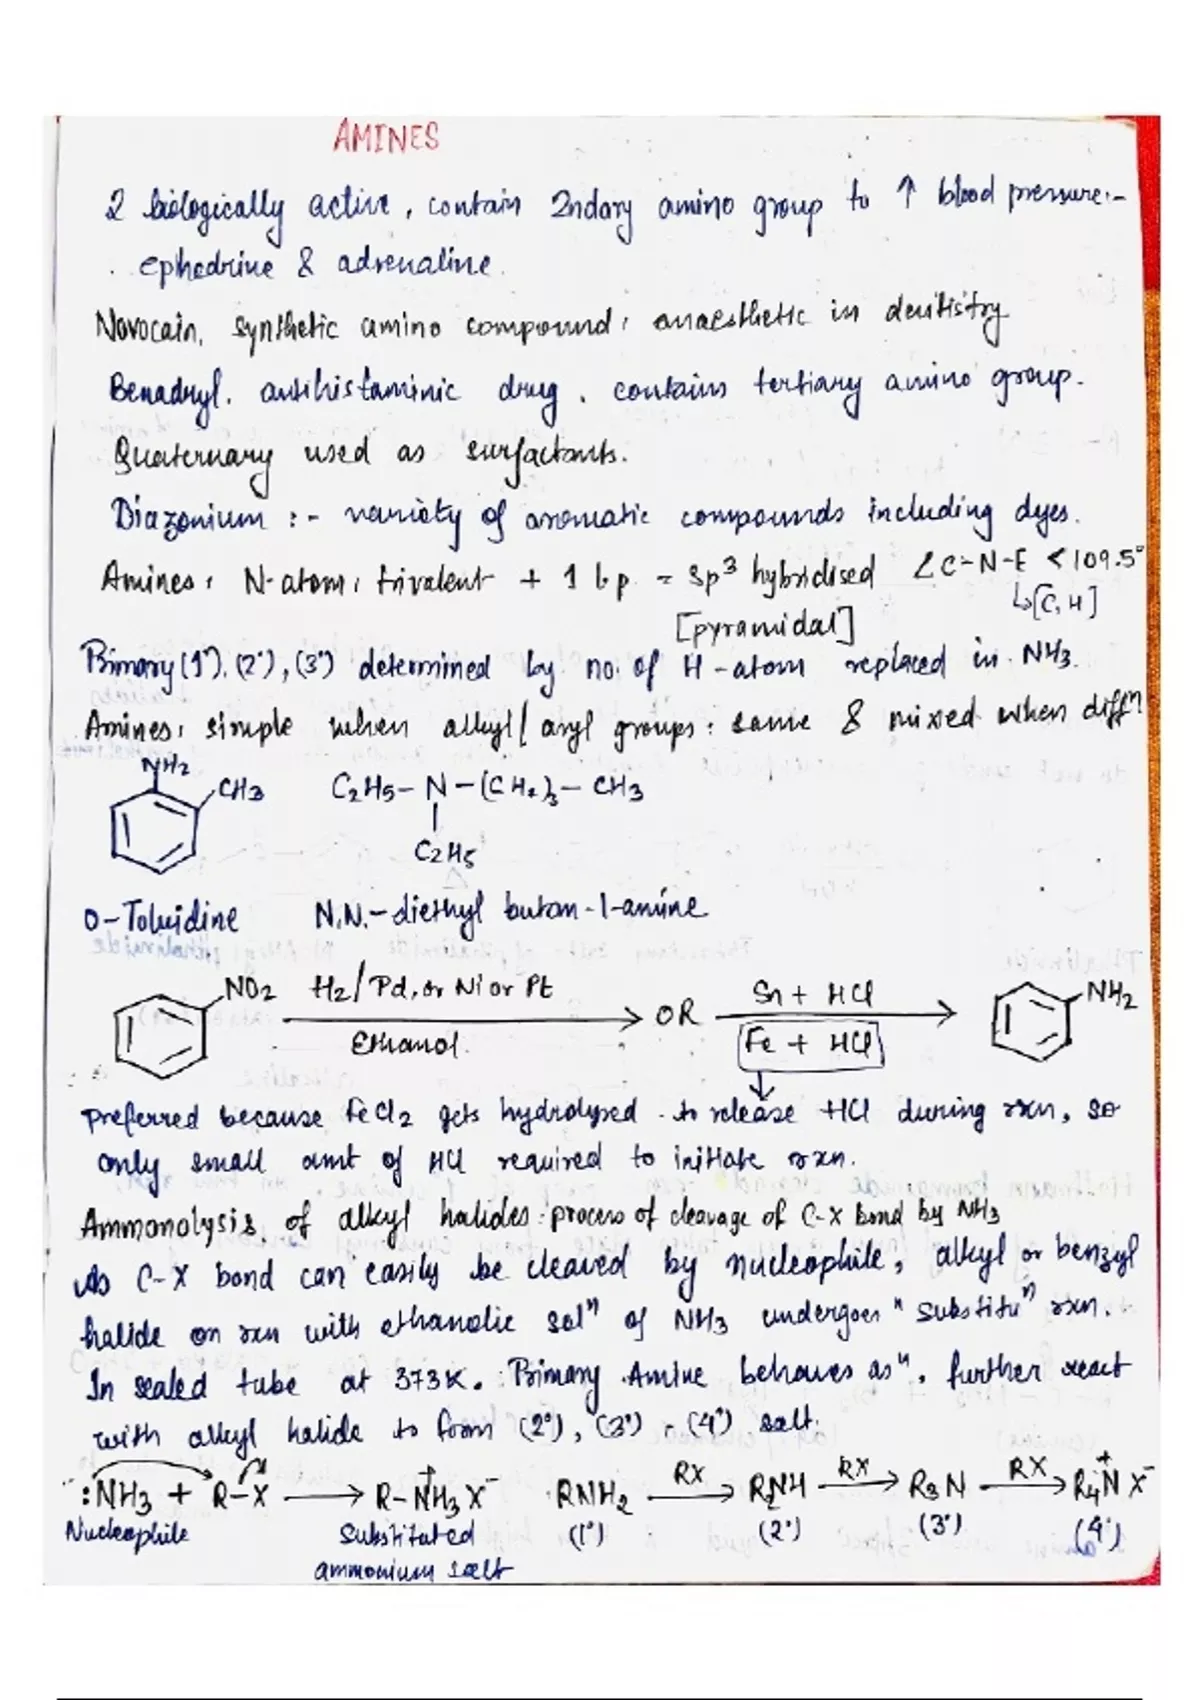 AMINES
2 biologically active, contain 2ndary amino group to ↑ blood pressure:-
ephedrine & adrenaline.
Novocain, synthetic amino compound, anaesthetic in dentistry
Benadryl, antihistaminic drug, contains tertiary amino group.
Quaternary used as surfactants.
Diazonium :- variety of aromatic compounds including dyes.
Amines, N-atom, trivalent + 1 l.p. = sp3 hybridised ∠C-N-E < 109.5°
↳[C, H]
[pyramidal]
Primary (1°), (2°), (3°) determined by no. of H-atom replaced in NH3.
Amines, simple when alkyl/aryl groups: same & mixed when diffn
NH2
CH3 C2H5-N-(CH2)3-CH3
C2H5
O-Toluidine N,N.-diethyl butan-1-amine
NO2 H2/Pd, or Ni or Pt OR Sn + HCl NH2
Ethanol. Fe + HCl
preferred because FeCl2 gets hydrolysed to release HCl during rxn, so
only small amt of HCl required to initiate rxn.
Ammonolysis of alkyl halides: process of cleavage of C-X bond by NH3
As C-X bond can easily be cleaved by nucleophile, alkyl or benzyl
halide on rxn with ethanolic soln of NH3 undergoes "substitun rxn.
In sealed tube at 373K. Primary Amine behaves as", further react
with alkyl halide to form (2°), (3°), (4°) salt.
:NH3 + R-X ⟶ R-N+H3X- RNH2 RX⟶ R2NH RX⟶ R3N RX⟶ R4N+X-
Nucleophile Substituted (1°) (2°) (3°) (4°)
ammonium salt